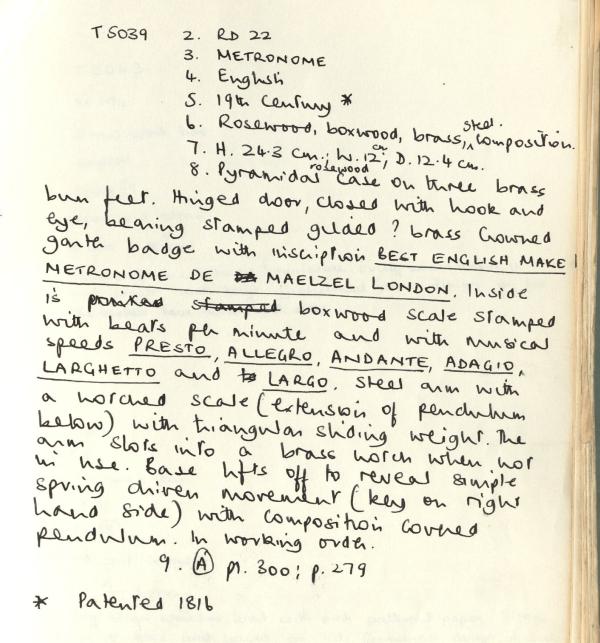 T5039 2. RD 22
3. METRONOME
4. English
5. 19th Century *
6. Rosewood, boxwood, brass, steel, composition.
7. H. 24.3 cm.; W. 12 cm; D. 12.4 cm.
8. Pyramidal rosewood case on three brass
bun feet. Hinged door, closed with hook and
eye, bearing stamped gilded ? brass crowned
garter badge with inscription BEST ENGLISH MAKE
METRONOME DE MAELZEL LONDON. Inside
is printed stamped boxwood scale stamped
with beats per minute and with musical
speeds PRESTO, ALLEGRO, ANDANTE, ADAGIO,
LARGHETTO and LARGO. Steel arm with
a notched scale (extension of pendulum
below) with triangular sliding weight. The
arm slots into a brass notch when not
in use. Base lifts off to reveal simple
spring driven movement (key on right
hand side) with composition covered
pendulum. In working order.
9. A pl. 300; p. 279
* Patented 1816